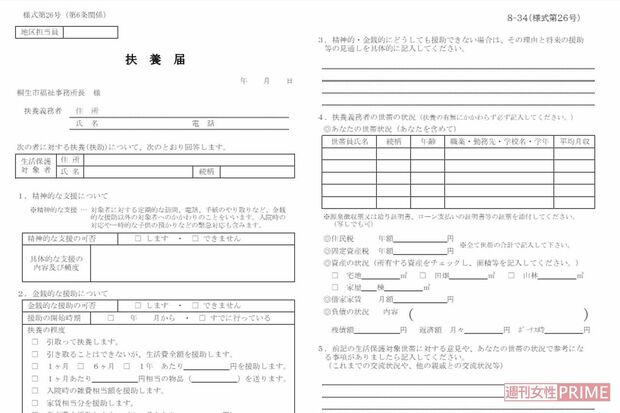 様式第26号(第6条関係)
地区担当員
扶 養 届
年 月 日
桐生市福祉事務所長 様
扶養義務者 住 所
氏 名 電 話
次の者に対する扶養(扶助)について、次のとおり回答します。
生活保護対象者 住 所
氏 名 続柄
1.精神的な支援について
※精神的な支援 … 対象者に対する定期的な訪問、電話、手紙のやり取りなど、金銭
的な援助以外の対象者へのかかわりのことをいいます。入院時の
対応や一時的な子供の預かりなどの緊急対応も含みます。
精神的な支援の可否 □ します ・ □ できません
具体的な支援の
内容及び頻度
2.金銭的な援助について
金銭的な援助の可否 □ します ・ □ できません
援助の開始時期 □ 年 月から ・ □ すでに行っている
扶養の程度
□ 引取って扶養します。
□ 引き取ることはできないが、生活費全額を援助します。
□ 1ヶ月 □ 6ヶ月 □ 1年 あたり 円を援助します。
□ 1ヶ月あたり 円相当の物品( )を送ります。
□ 入院時の雑費相当額を援助します。
□ 家賃相当分を援助します。
8-34(様式第26号)
3.精神的・金銭的にどうしても援助できない場合は、その理由と将来の援助
等の見通しを具体的に記入してください。
4.扶養義務者の世帯の状況(扶養の有無にかかわらず必ず記入してください。)
◎あなたの世帯状況(あなたを含めて)
世帯員氏名 続柄 年齢 職業・勤務先・学校名・学年 平均月収
※源泉徴収票又は給与証明書、ローン支払いの証明書等の証票を添付してください。
(写しでも可)
◎住民税 年額 円
※全て世帯の合計で記入して下さい。
◎固定資産税 年額 円
◎資産の状況(所有する資産をチェックし、面積等を記入してください。)
□ 宅地 ㎡ □ 田畑 ㎡ □ 山林 ㎡
□ 家屋 棟 ㎡
◎借家家賃 月額 円
◎負債の状況 内容 ( )
残債額 円 返済額 月々 円 ボーナス時 円
5.前記の生活保護対象世帯に対する意見や、あなたの世帯の状況で参考にな
る事項がありましたら記入してください。
(これまでの交流状況や、他の親戚との交流状況等)
週刊女性PRIME